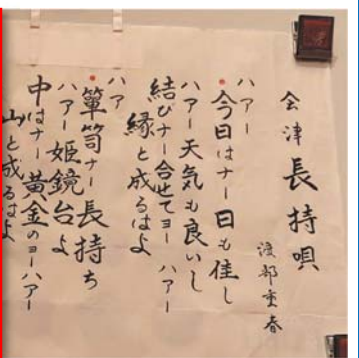 会津長持唄
渡部重春
ハアー
今日はナー日も佳し
ハアー天気も良いし
結びナー合せてヨー ハアー
縁と成るはよ
ハア
箪笥ナー長持ち
ハアー姫鏡台よ
中はナー黄金のヨーハアー
山と成るはよ